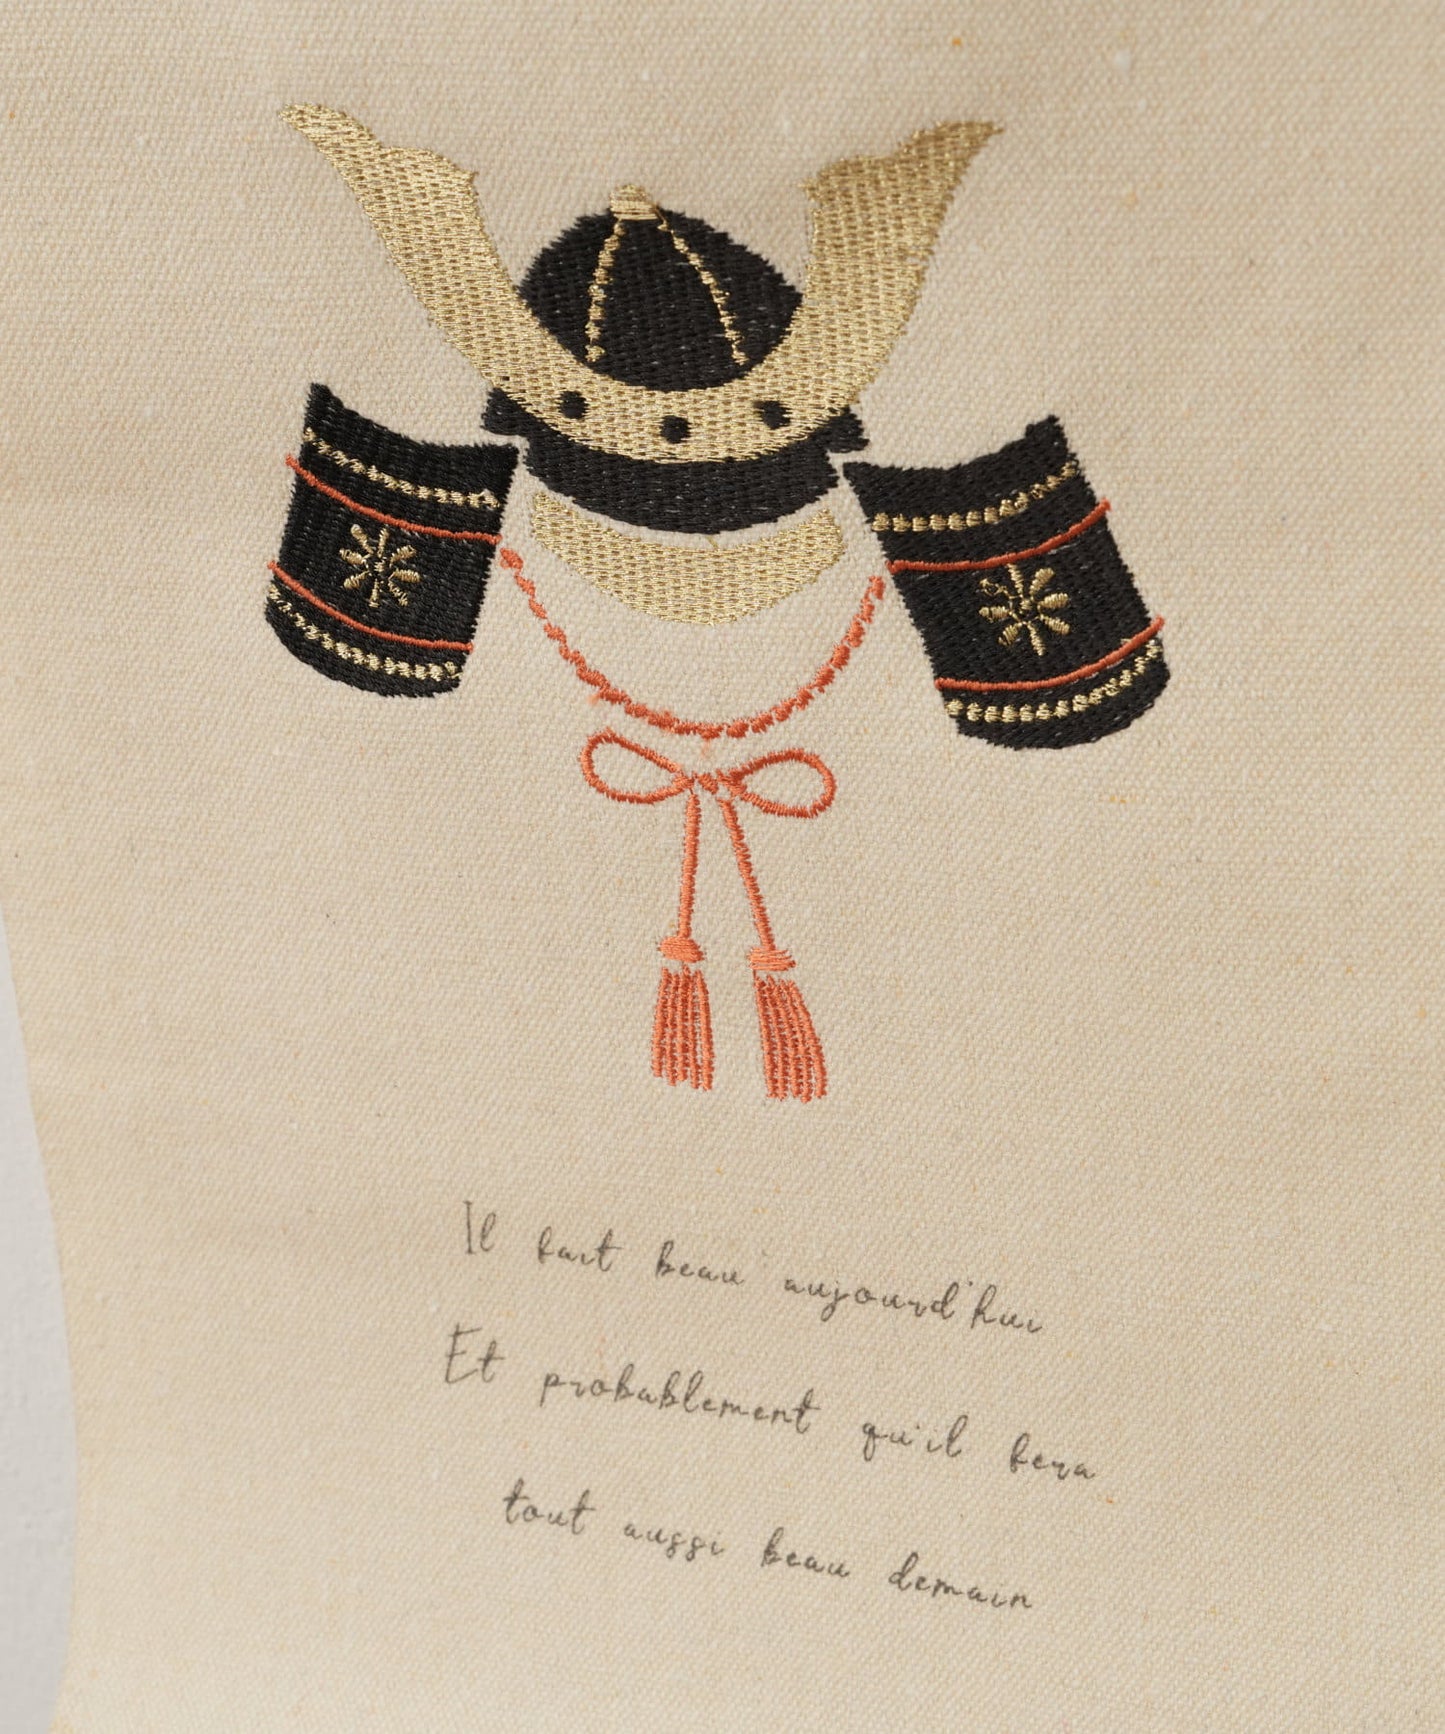 Il fait beau aujourd'hui
Et probablement qu'il fera
tout aussi beau demain